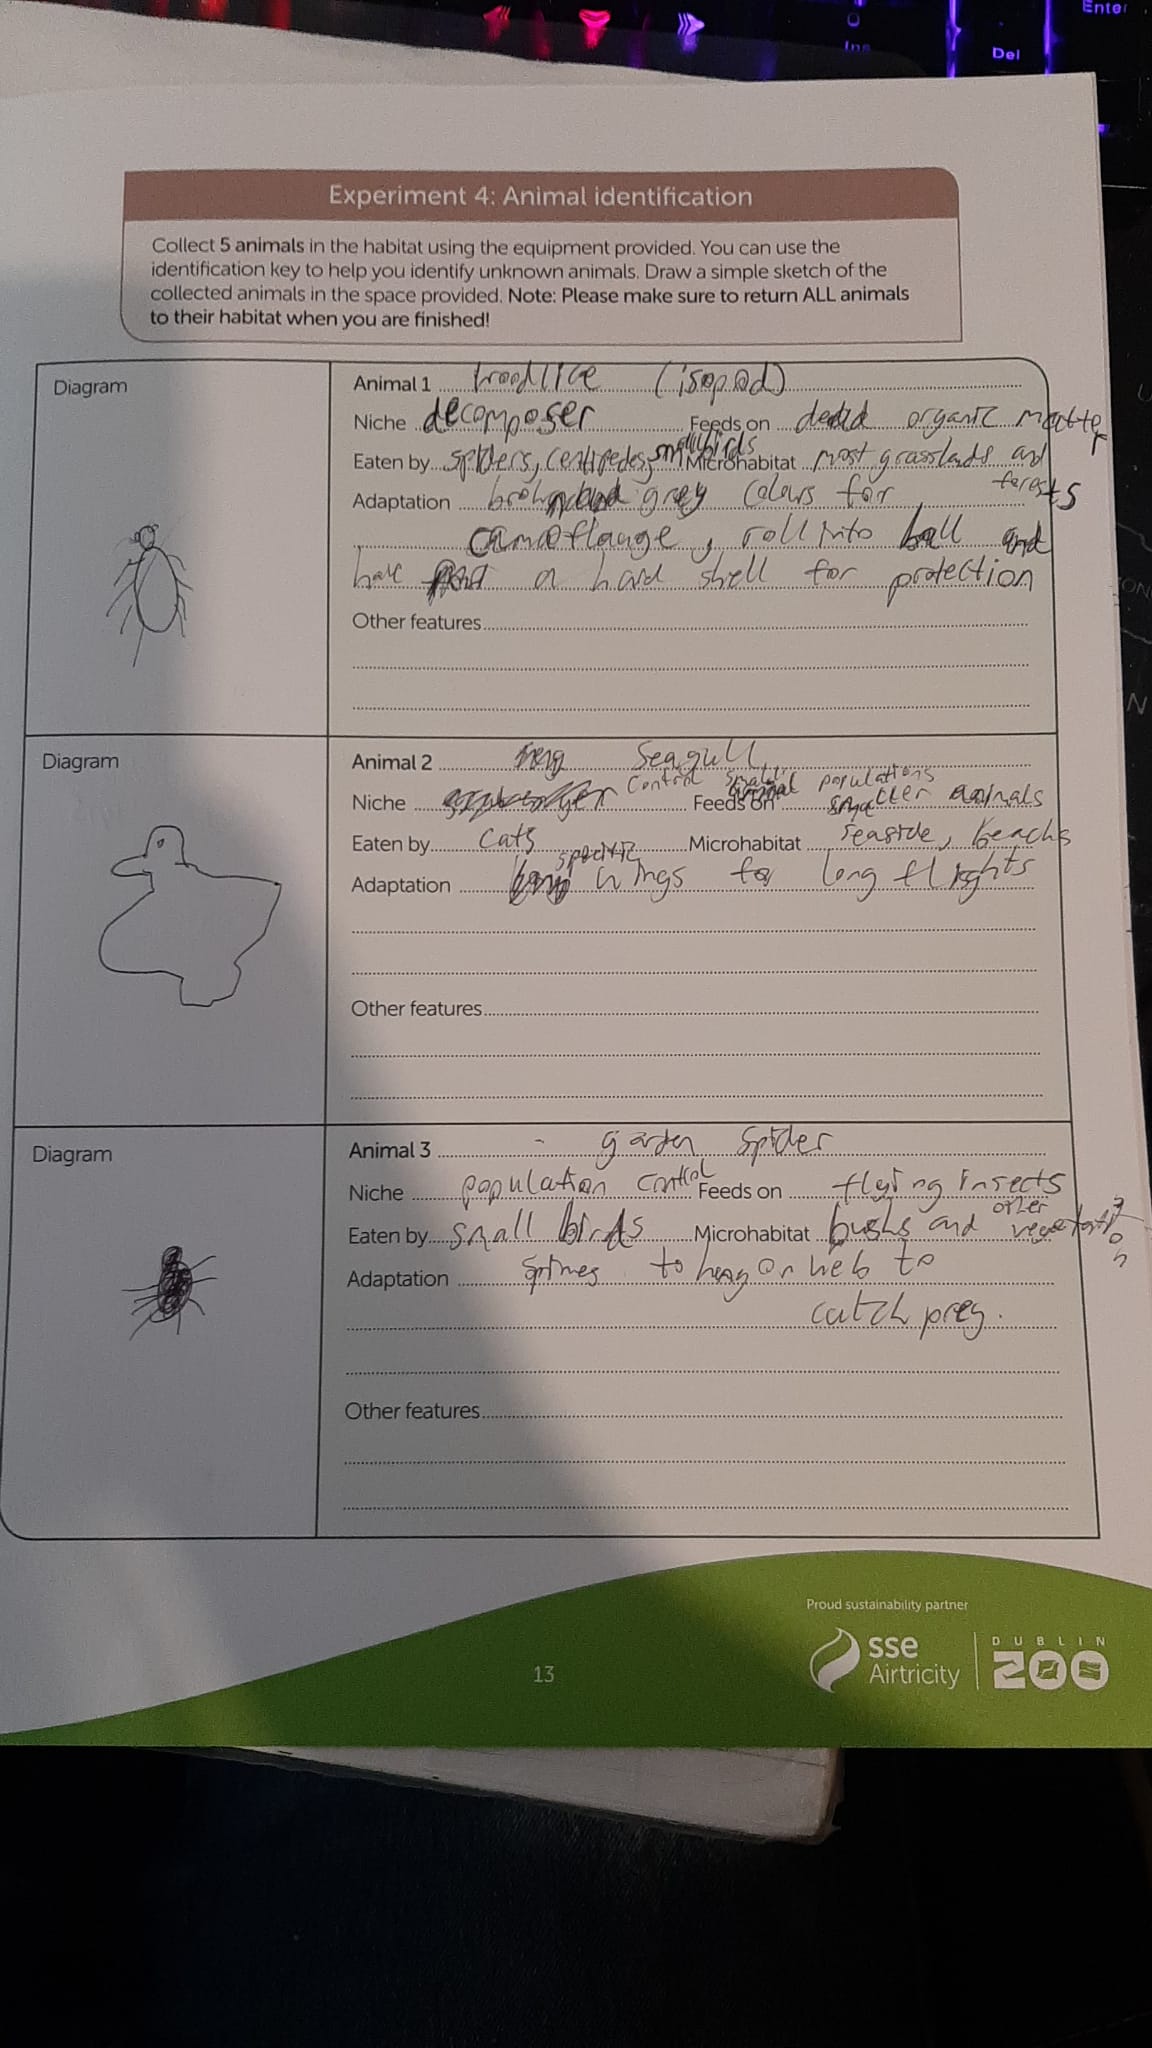 Enter
Ins
Del
Experiment 4: Animal identification
Collect 5 animals in the habitat using the equipment provided. You can use the
identification key to help you identify unknown animals. Draw a simple sketch of the
collected animals in the space provided. Note: Please make sure to return ALL animals
to their habitat when you are finished!
Diagram
Animal 1 woodlice (isopod)
Niche decomposer Feeds on dead organic matter
Eaten by spiders, centipedes, small birds Microhabitat most grasslands and forests
Adaptation brown and grey colours for
camoflauge, roll into ball and
have a hard shell for protection
Other features
Diagram
Animal 2 Seagull
Niche control small animal populations Feeds on smaller animals
Eaten by cats Microhabitat seaside, beachs
Adaptation specific wings for long flights
Other features
Diagram
Animal 3 garden spider
Niche population control Feeds on flying insects
Eaten by small birds Microhabitat bushs and other vegetation
Adaptation spines to hang on web to
catch prey.
Other features
Proud sustainability partner
sse
Airtricity
DUBLIN
ZOO
13